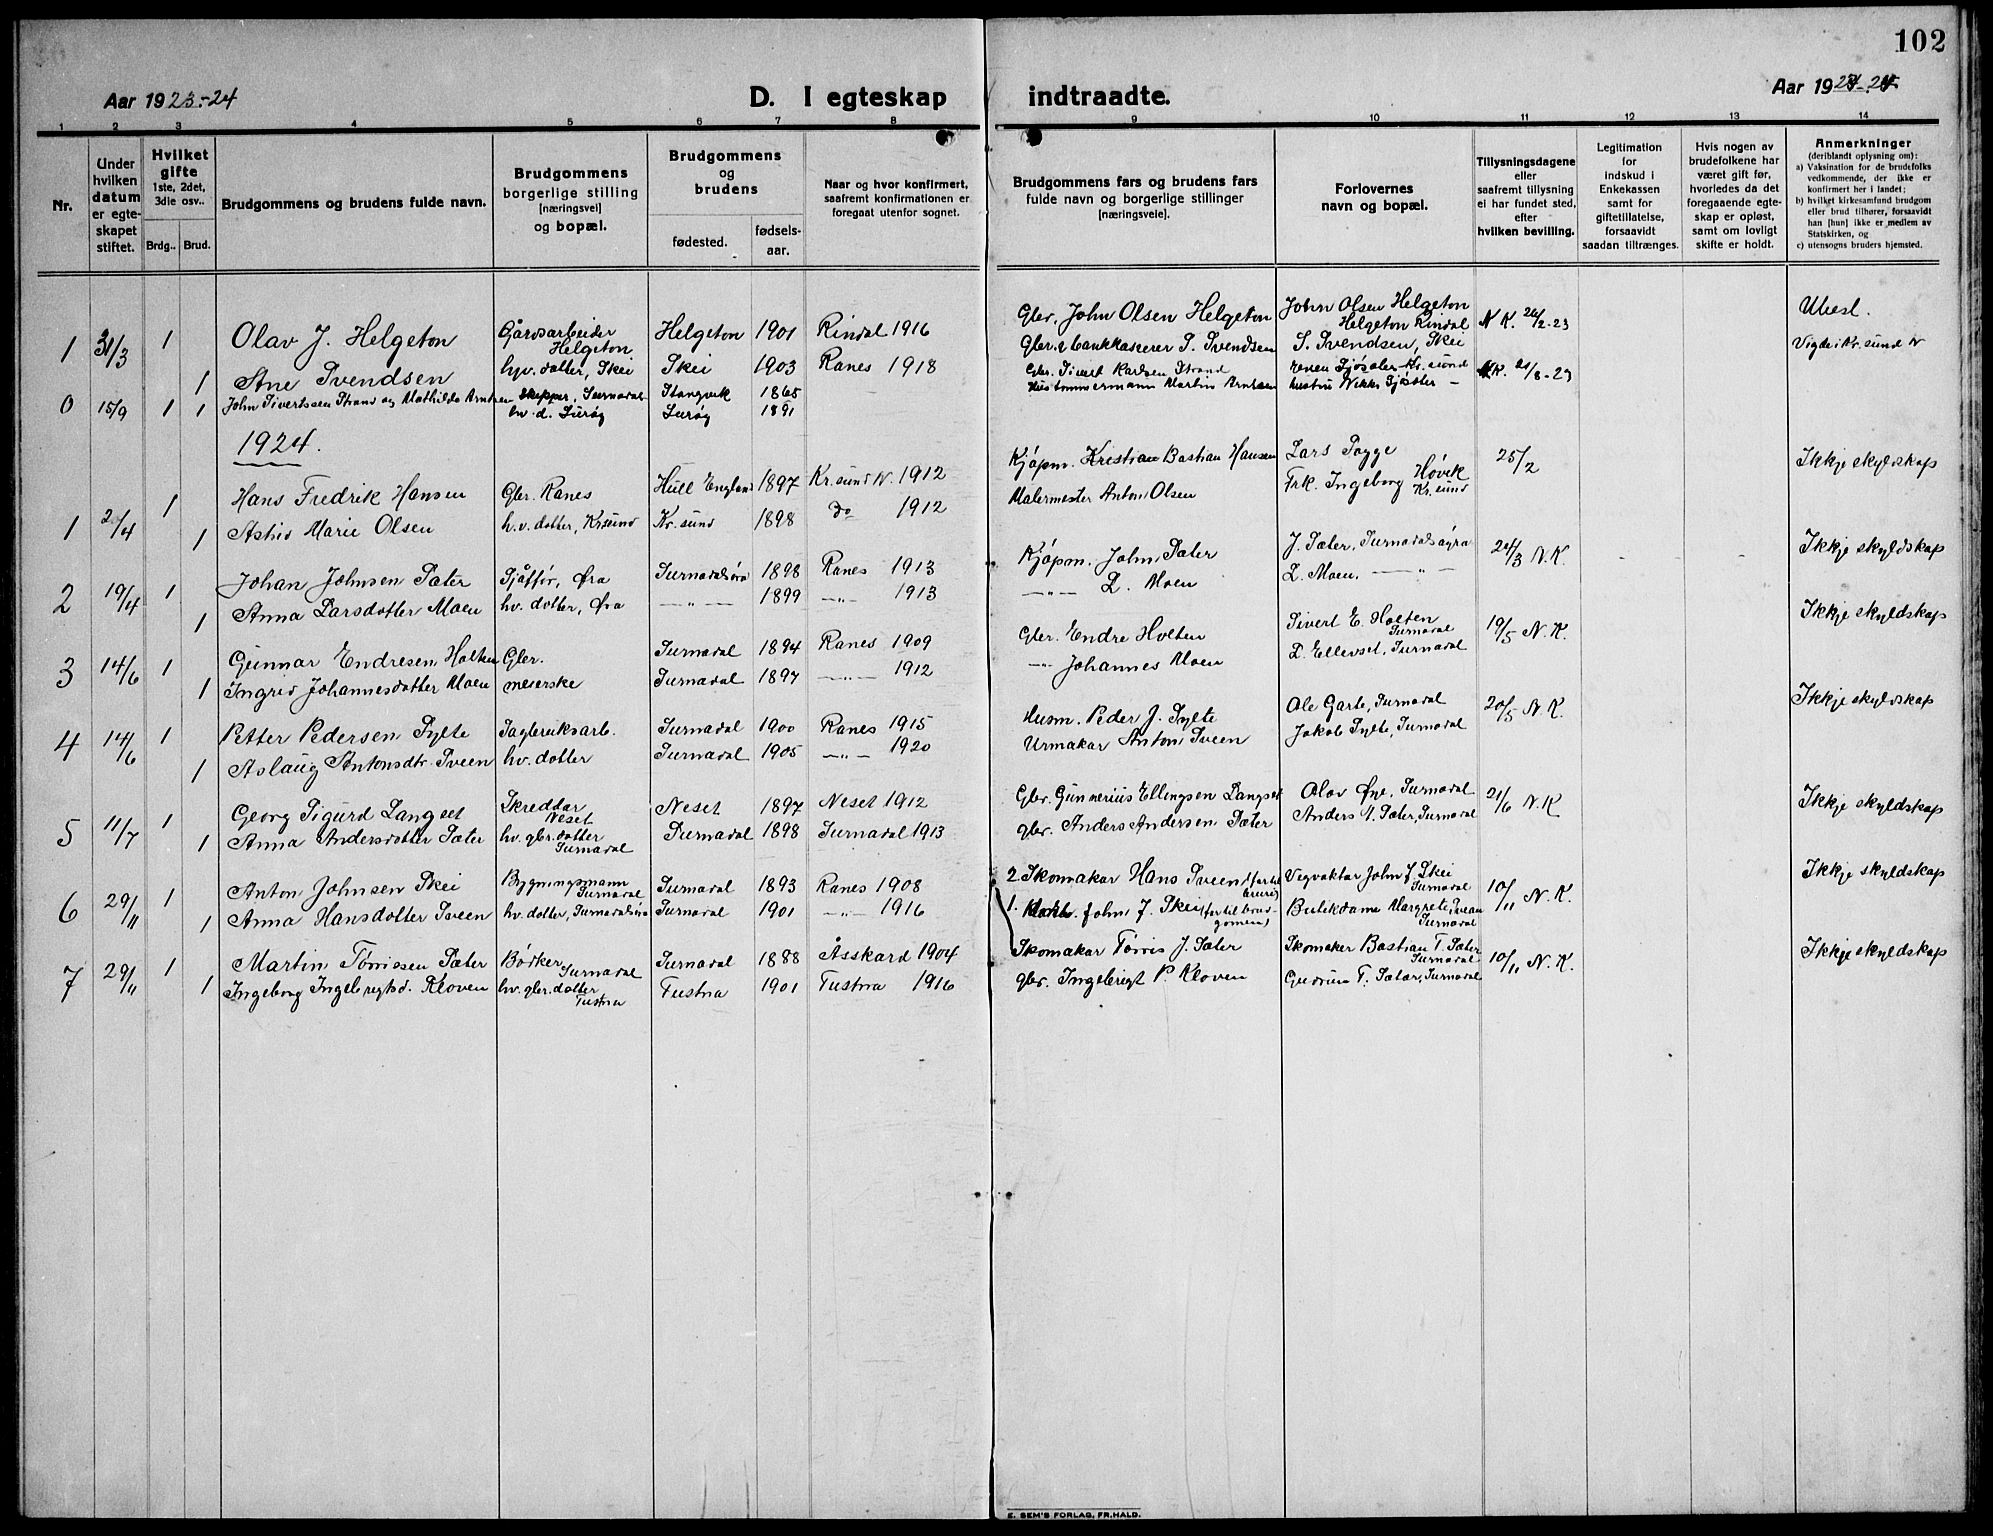 102
Aar 1923-24
D. I egteskap
indtraadte.
Aar 19
1 2 3 4 5 6 7 8 9 10 11 12 13 14
Nr.
Under hvilken datum er egteskapet stiftet.
Hvilket gifte
1ste, 2det, 3die osv..
Brdg.. Brud.
Brudgommens og brudens fulde navn.
Brudgommens borgerlige stilling [næringsvei] og bopæl.
Brudgommens og brudens
fødested.
fødselsaar.
Naar og hvor konfirmert, saafremt konfirmationen er foregaat utenfor sognet.
Brudgommens fars og brudens fars fulde navn og borgerlige stillinger [næringsveie].
Forlovernes navn og bopæl.
Tillysningsdagene eller saafremt tillysning ei har fundet sted, efter hvilken bevilling.
Legitimation for indskud i Enkekassen samt for giftetillatelse, forsaavidt saadan tiltrænges.
Hvis nogen av brudefolkene har været gift før, hvorledes da det foregaaende egteskap er opløst, samt om lovligt skifte er holdt.
Anmerkninger (deriblandt oplysning om):
a) Vaksination for de brudefolks vedkommende, der ikke er konfirmert her i landet;
b) hvilket kirkesamfund brudgom eller brud tilhører, forsaavidt han [hun] ikke er medlem av Statskirken, og
c) utensogns bruders hjemsted.
1 31/3 1 Olav J. Helgeton Gårdsarbeider Helgeton Helgeton 1901 Rindal 1916 Gbr. John Olsen Helgeton John Olsen Helgeton Helgeton Rindal N.K. 26/2-23 Ubesl.
1 Ane Svendsen hv. dotter, Skei Skei 1903 Ranes 1918 Gbr. & bankkaserer S. Svendsen S. Svendsen, Skei Vigde i Kr.sund N
0 15/9 1 1 John Sivertssen Strand og Mathilde Arntzen Skipper, Surnadal Stangvik 1865 Gbr. Sivert Karlsen Strand Kr.sund N.K. 21/8-23
hv. d. Surøy Surøy 1891 Martin Arntzen
1924.
1 2/4 1 Hans Fredrik Hansen Gbr. Ranes Hull England 1897 Kr.sund N. 1912 Kjøpm. Kristian Bastian Hansen Lars Togge 25/2 Ikkje skyldskap
1 Astrid Marie Olsen h.v. dotter, Kr.sund Kr.sund 1898 do 1912 Malermester Anton Olsen Frk. Ingeborg Høvik Kr.sund
2 19/4 1 Johan Johnsen Sæter Sjåffør, Øra Surnadalsøra 1898 Ranes 1913 Kjøpm. John Sæter J. Sæter, Surnadalsøyra 24/3 N.K. - - Ikkje skyldskap
1 Anna Larsdotter Moen hv. dotter, Øra —"— 1899 —"— 1913 —"— L. Moen L. Moen. —"—
3 14/6 1 Gunnar Endresen Holten Gbr. Surnadal 1894 Ranes 1909 Gbr. Endre Holten Sivert E. Holten Surnadal 19/5 N.K. Ikkje skyldskap
1 Ingrid Johannesdotter Moen meierske Surnadal 1897 —"— 1912 —"— Johannes Moen L. Ellevset, Surnadal
4 14/6 1 Petter Pedersen Sylte Sagbruksarb. Surnadal 1900 Ranes 1915 Husm. Peder J. Sylte Ole Garte, Surnadal 20/5 N.K. Ikkje skyldskap
1 Aslaug Antonsdtr. Sveen hv. dotter Surnadal 1905 —"— 1920 Urmakar Anton Sveen Jakob Sylte, Surnadal
5 11/7 1 Georg Sigurd Langset Skreddar Neset Neset 1897 Neset 1912 Gbr. Gunnerius Ellingsen Langset Olav Øye, Surnadal 21/6 N.K. Ikkje skyldskap
1 Anna Andersdotter Sæter hv. gbr. dotter Surnadal Surnadal 1898 Surnadal 1913 gbr. Anders Andersen Sæter Anders A. Sæter, Surnadal
6 29/11 1 Anton Johnsen Skei Bygningsmann Surnadal Surnadal 1893 Ranes 1908 2 Skomakar Hans Sveen (far til bruri) Vegvaktar John J. Skei Surnadal 10/11 N.K. Ikkje skyldskap
1 Anna Hansdotter Sveen hv. dotter, Surnadalsøra Surnadal 1901 —"— 1916 1. John J. Skei (far til brudgomen) Butikdame Margrete Sveen Surnadal
7 29/11 1 Martin Tørrissen Sæter Bødker Surnadal Surnadal 1888 Åsskard 1904 Skomakar Tørris J. Sæter Skomaker Bastian T. Sæter Surnadal 10/11 N.K. Ikkje skyldskap
1 Ingeborg Ingebrigtsd. Kloven hv. gbr. dotter Tustna Tustna 1901 Tustna 1916 gbr. Ingebrigt P. Kloven Gudrun T. Sæter, Surnadal
E. SEM'S FORLAG, FR.HALD.